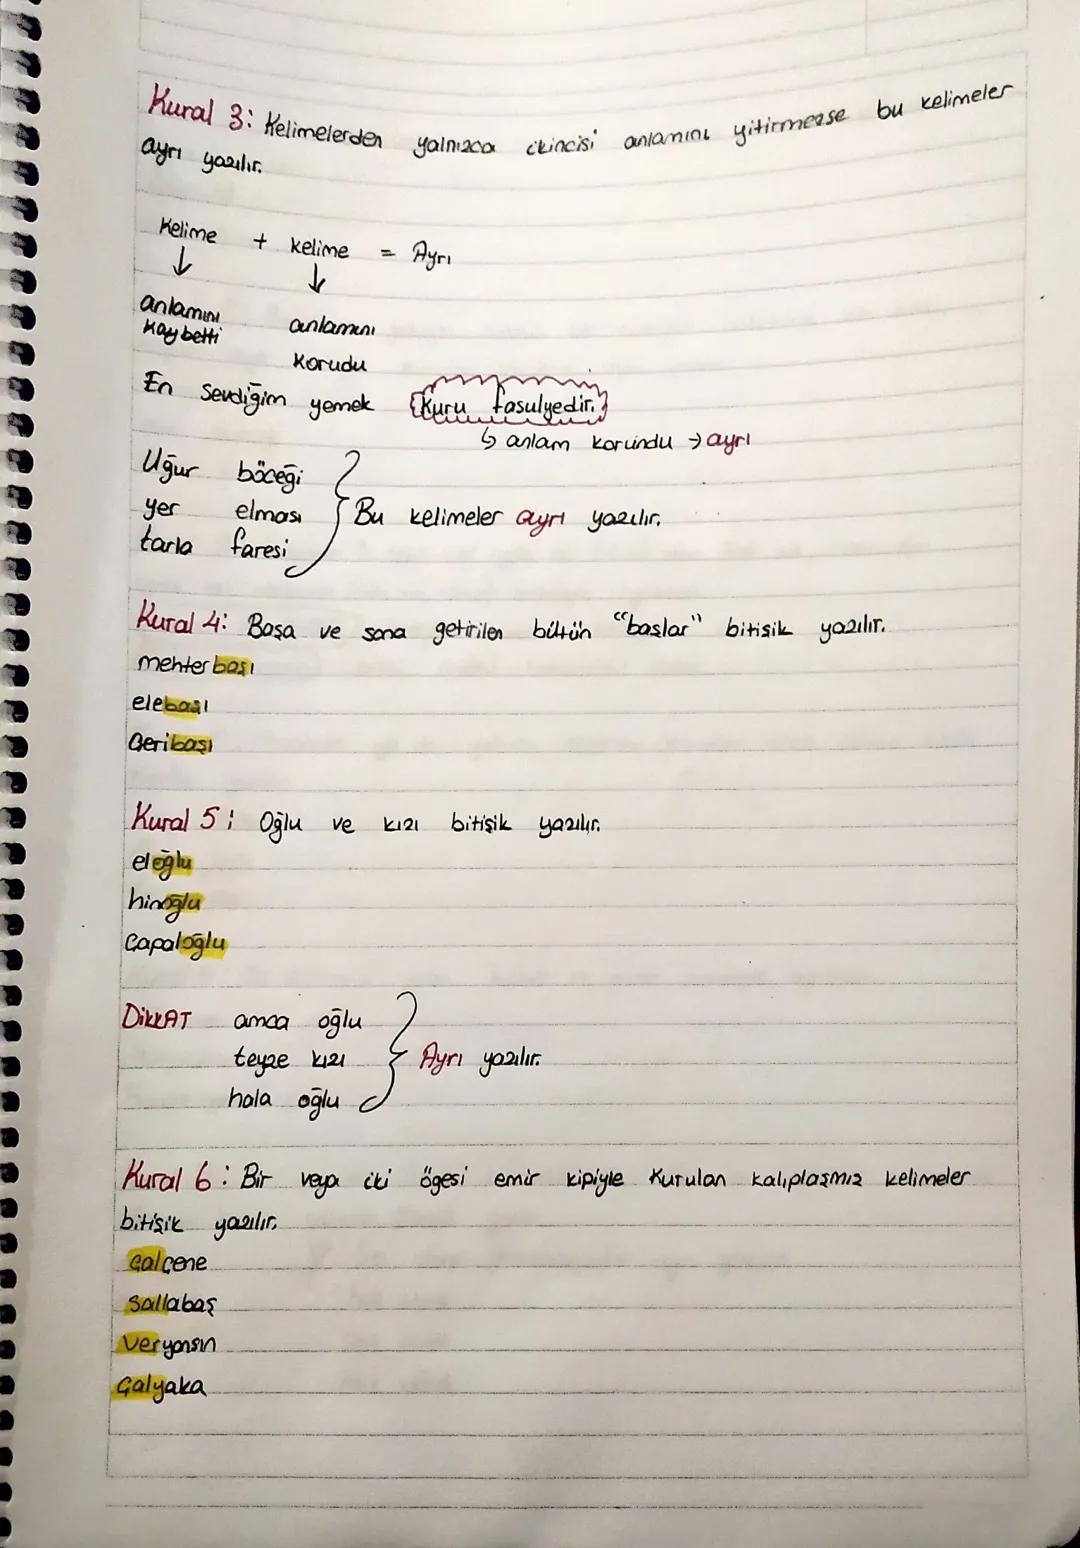 Kural 3: Kelimelerden yalnızca ikincisi anlamını yitirmezse bu kelimeler
ayrı yazılır.
Kelime + kelime = Ayrı
↓ ↓
anlamını anlamını
kaybetti korudu
En sevdiğim yemek kuru fasulyedir.
↳ anlam korundu → ayrı
Uğur böceği
yer elması } Bu kelimeler ayrı yazılır.
tarla faresi
Kural 4: Başa ve sona getirilen bütün "başlar" bitişik yazılır.
mehterbaşı
elebaşı
Çeribaşı
Kural 5: Oğlu ve kızı bitişik yazılır.
eloğlu
hinoğlu
Çapaloğlu
DİKKAT amca oğlu
teyze kızı } Ayrı yazılır.
hala oğlu
Kural 6: Bir veya iki ögesi emir kipiyle kurulan kalıplaşmız kelimeler
bitişik yazılır.
çalçene
Sallabaş
Veryansın
Çalyaka